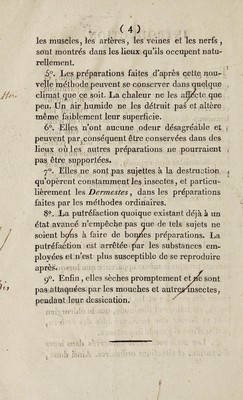 ( 4 )
les muscles, les artères, les veines et les nerfs,
sont montrés dans les lieux qu'ils occupent natu-
rellement.
5°. Les préparations faites d'après cette nou-
velle méthode peuvent se conserver dans quelque
climat que ce soit. La chaleur ne les affecte que
peu. Un air humide ne les détruit pas et altère
même faiblement leur superficie.
6°. Elles n'ont aucune odeur désagréable et
peuvent par conséquent être conservées dans des
lieux où les autres préparations ne pourraient
pas être supportées.
7°. Elles ne sont pas sujettes à la destruction
qu'opèrent constamment les insectes, et particu-
lièrement les Dermestes, dans les préparations
faites par les méthodes ordinaires.
8°. La putréfaction quoique existant déjà à un
état avancé n'empêche pas que de tels sujets ne
soient bons à faire de bonnes préparations. La
putréfaction est arrêtée par les substances em-
ployées et n'est plus susceptible de se reproduire
après.
9°. Enfin, elles sèches promptement et ne sont
pas attaquées par les mouches et autres insectes,
pendant leur dessication.